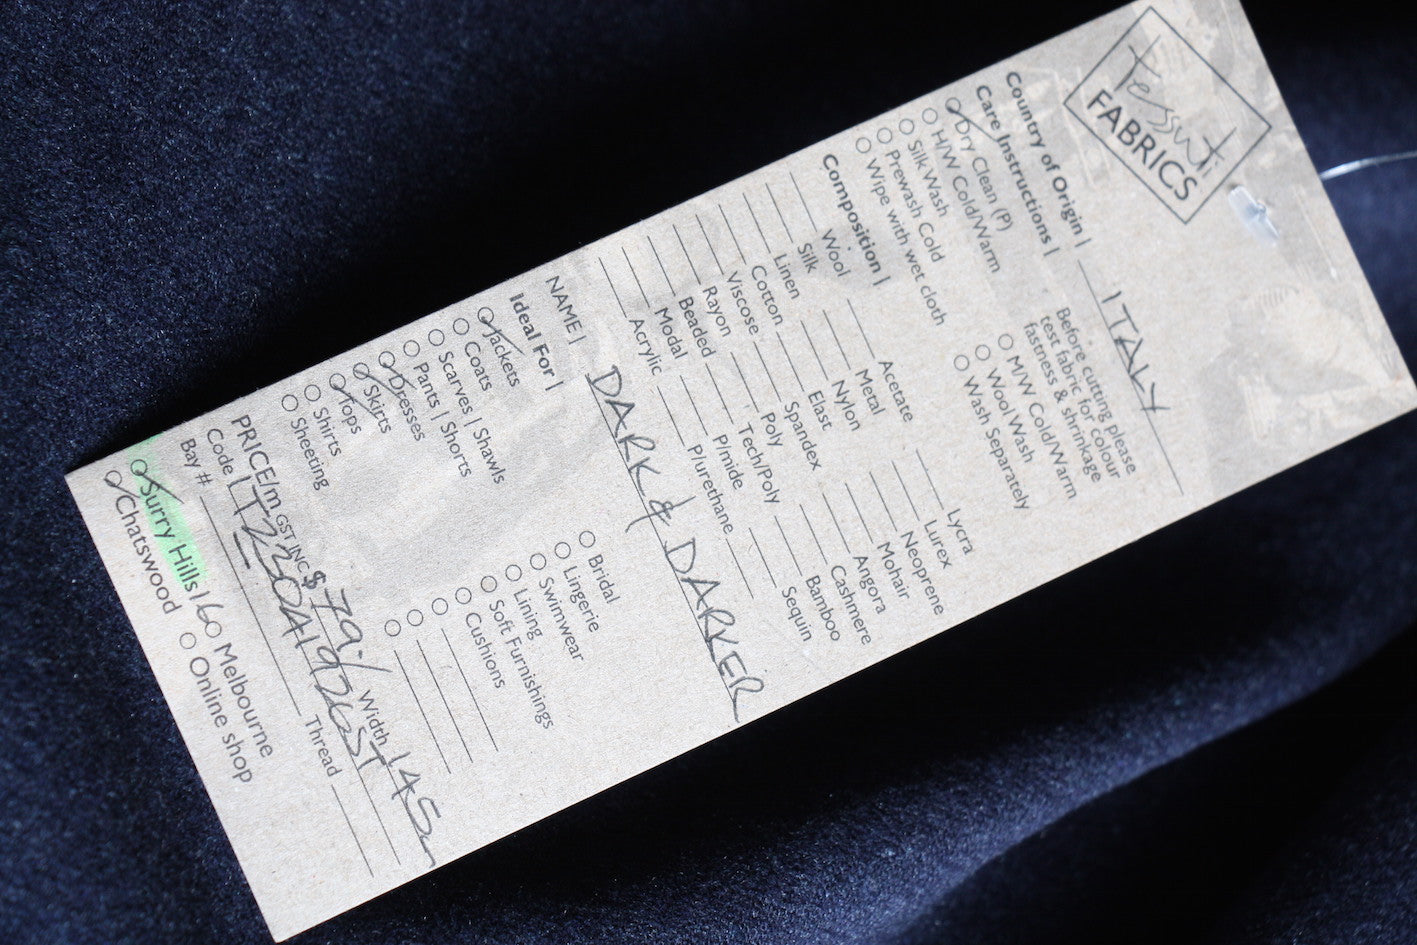 tessuti
FABRICS
Country of Origin | ITALY
Care Instructions |
Before cutting please
test fabric for colour
fastness & shrinkage
Dry Clean (P)
H/W Cold/Warm
M/W Cold/Warm
Silk Wash
Wool Wash
Prewash Cold
Wash Separately
Wipe with wet cloth
Composition |
Wool Acetate Lycra
Silk Metal Lurex
Linen Nylon Neoprene
Cotton Elast Mohair
Viscose Spandex Angora
Rayon Poly Cashmere
Beaded Tech/Poly Bamboo
Modal P/mide Sequin
Acrylic P/urethane
NAME | DARK & DARKER
Ideal For |
Jackets Bridal
Coats Lingerie
Scarves | Shawls Swimwear
Pants | Shorts Lining
Dresses Soft Furnishings
Skirts Cushions
Tops
Shirts
Sheeting
PRICE/m GST INC $ 79 Width 145
Code |
Bay # Thread
Surry Hills Melbourne
Chatswood Online shop